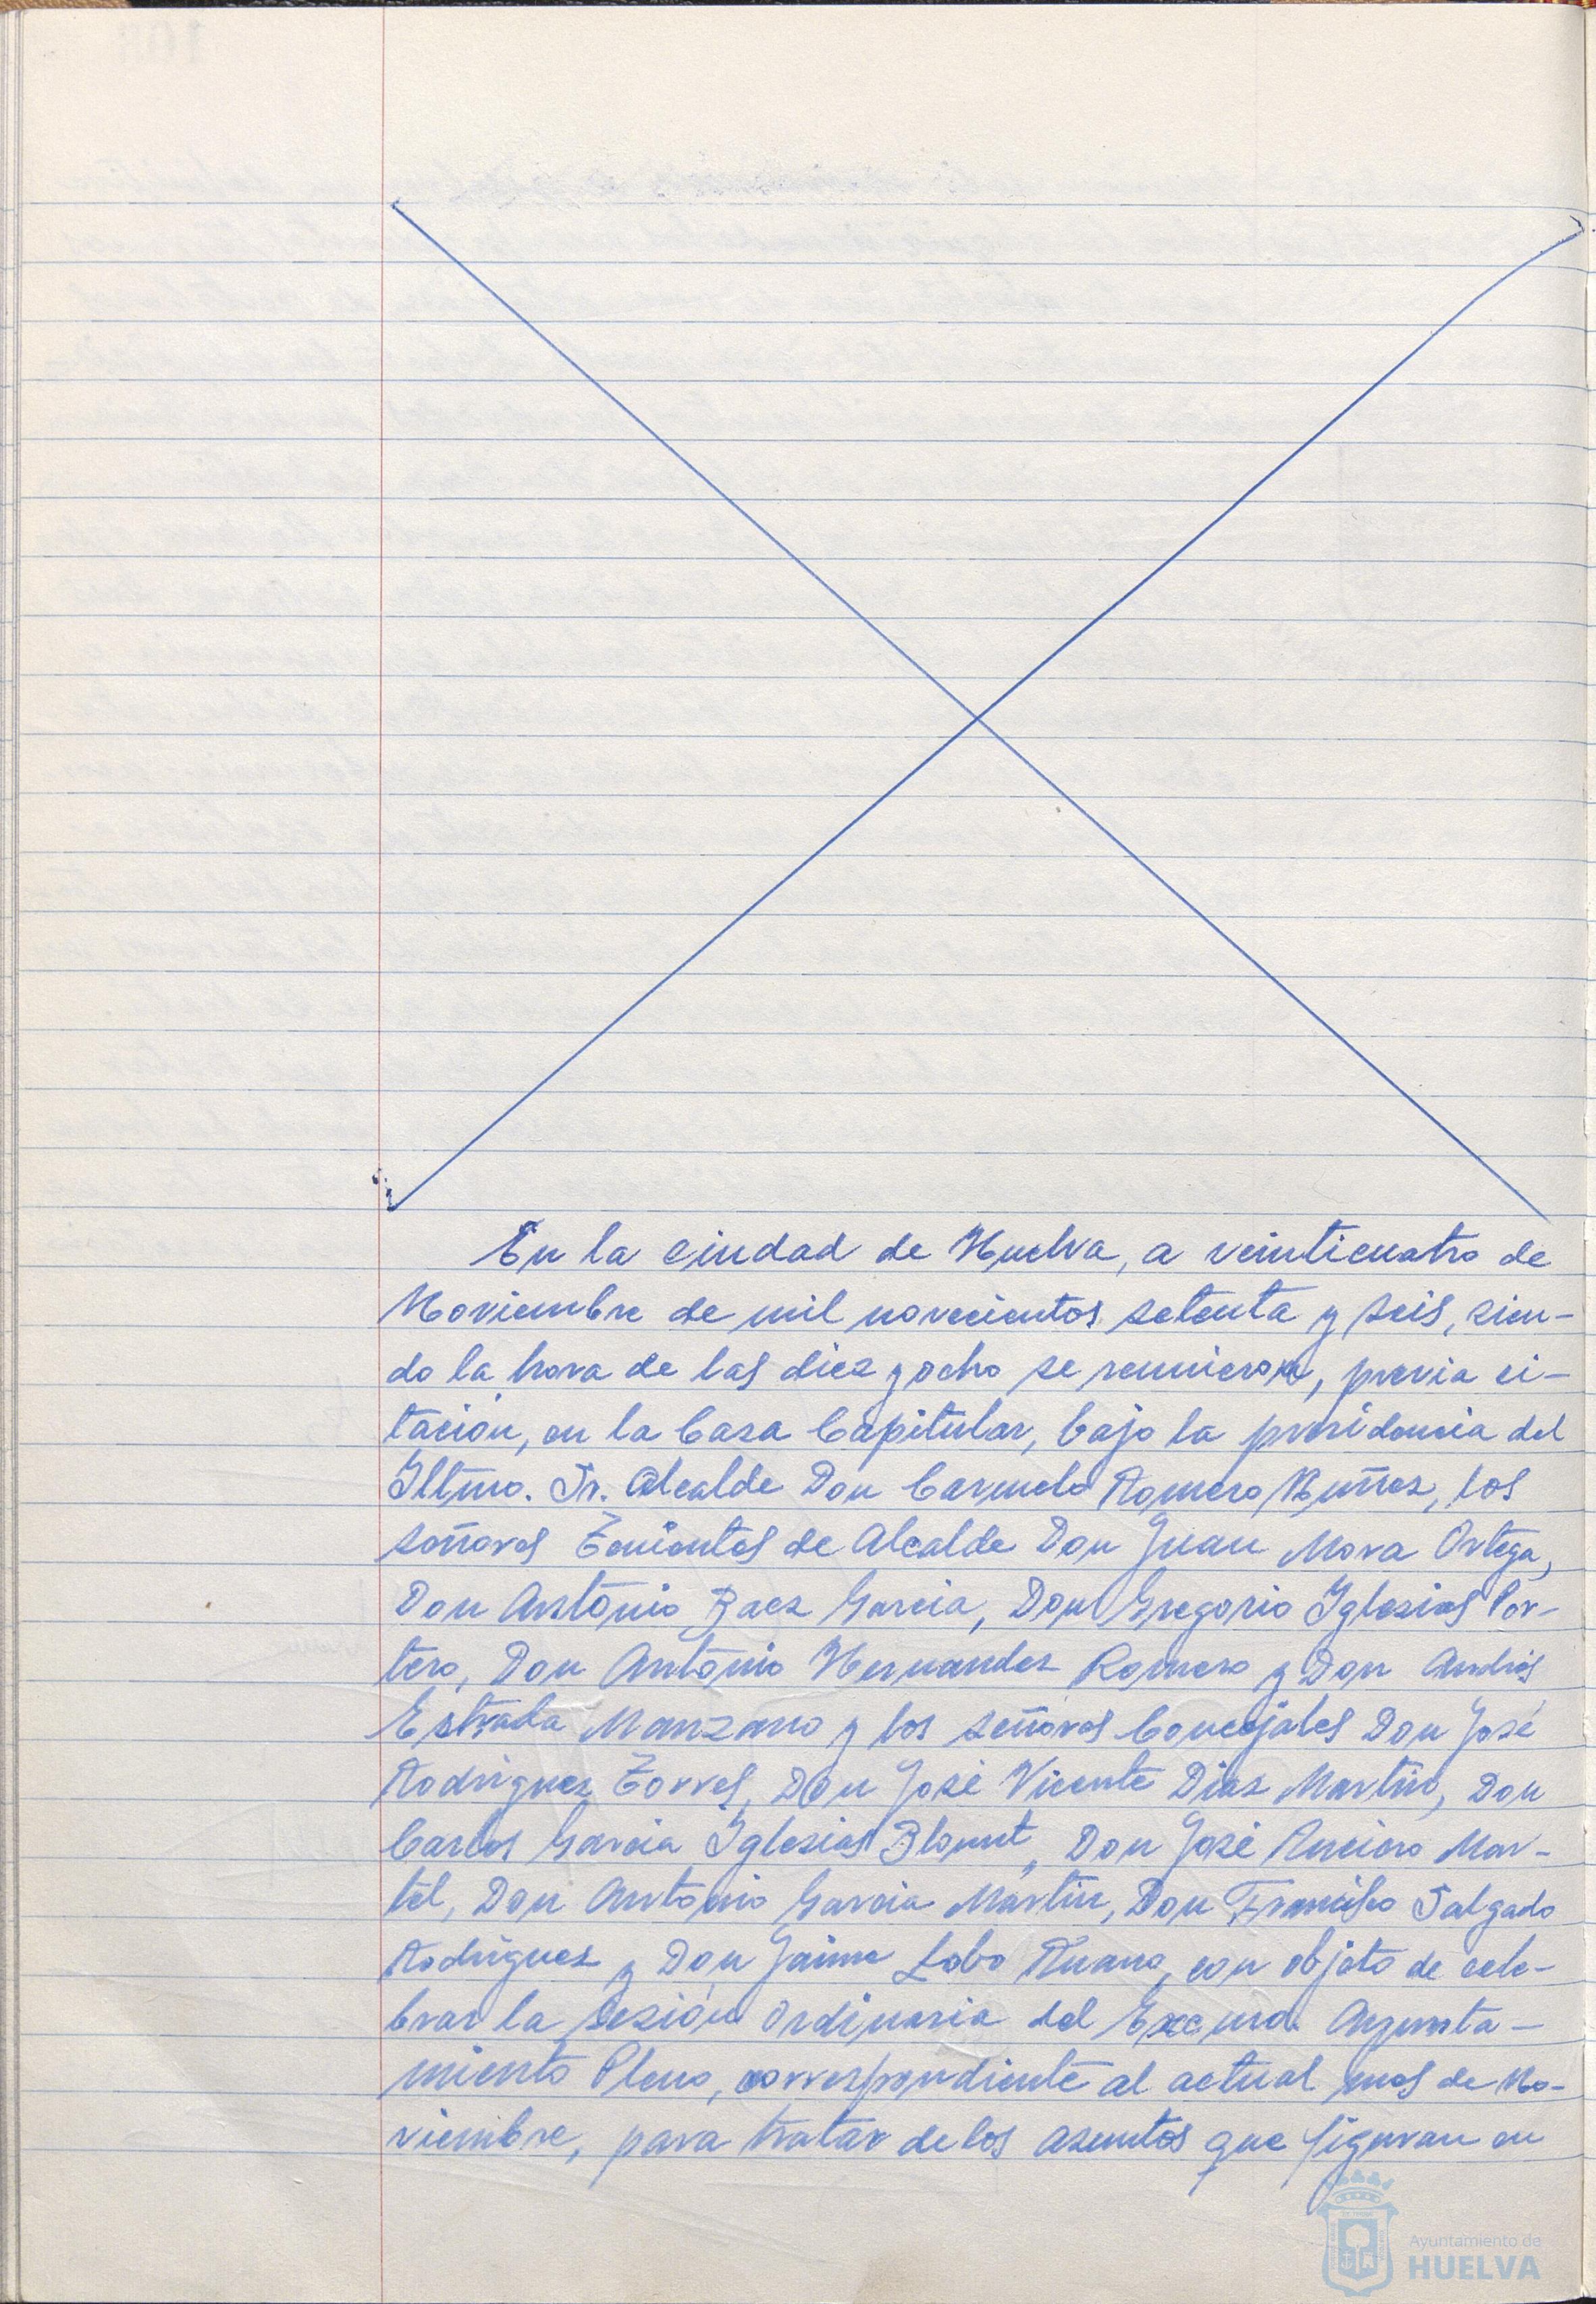 En la ciudad de Huelva, a veinticuatro de
Noviembre de mil novecientos setenta y seis, sien-
do la hora de las diez y ocho se reunieron, previa ci-
tación, en la Casa Capitular, bajo la presidencia del
Iltmo. Sr. Alcalde Don Carmelo Romero Nuñez, los
señores Tenientes de Alcalde Don Juan Mora Ortega,
Don Antonio Baez Garcia, Don Gregorio Iglesias Por-
tero, Don Antonio Hernandez Romero y Don Andrés
Estrada Manzano y los señores Concejales Don José
Rodriguez Torres, Don José Vicente Diaz Martin, Don
Carlos Garcia Iglesias Blount, Don José Ancioro Mar-
tel, Don Antonio Garcia Martin, Don Francisco Salgado
Rodriguez y Don Jaime Lobo Ruano, con objeto de cele-
brar la sesión ordinaria del Excmo. Ayunta-
miento Pleno, correspondiente al actual mes de No-
viembre, para tratar de los asuntos que figuran en
Ayuntamiento de
HUELVA